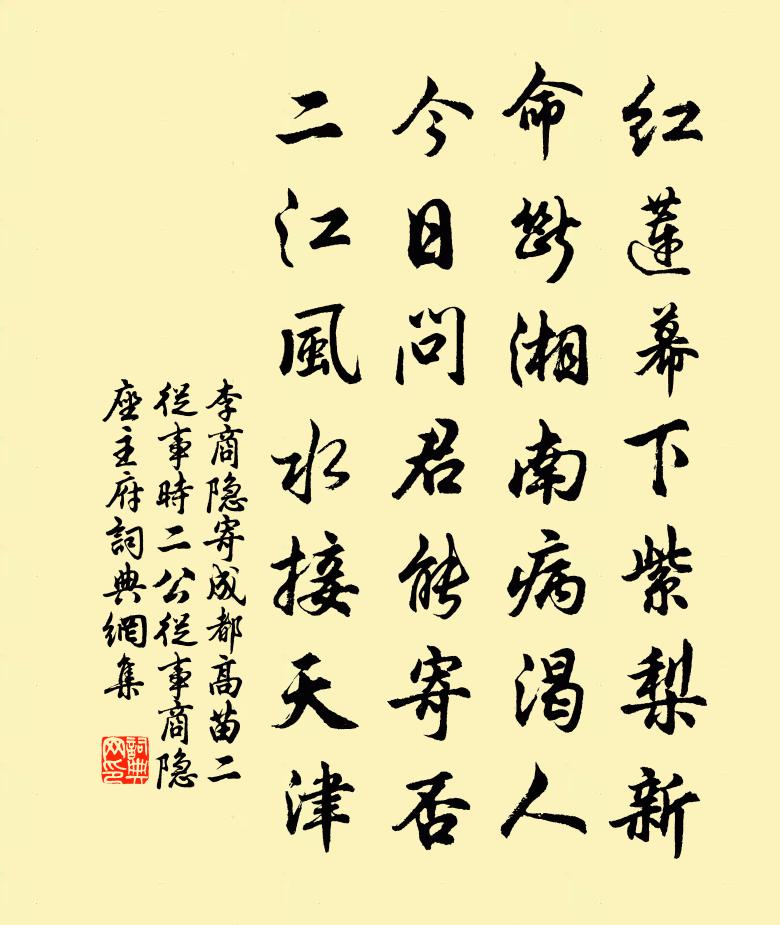 红蓮幕下紫梨新
命斷湘南病渴人
今日問君能寄否
二江風水接天津
李商隐寄成都高苗二
從事時二公從事商隐
座主府詞典網集
詞典
网印